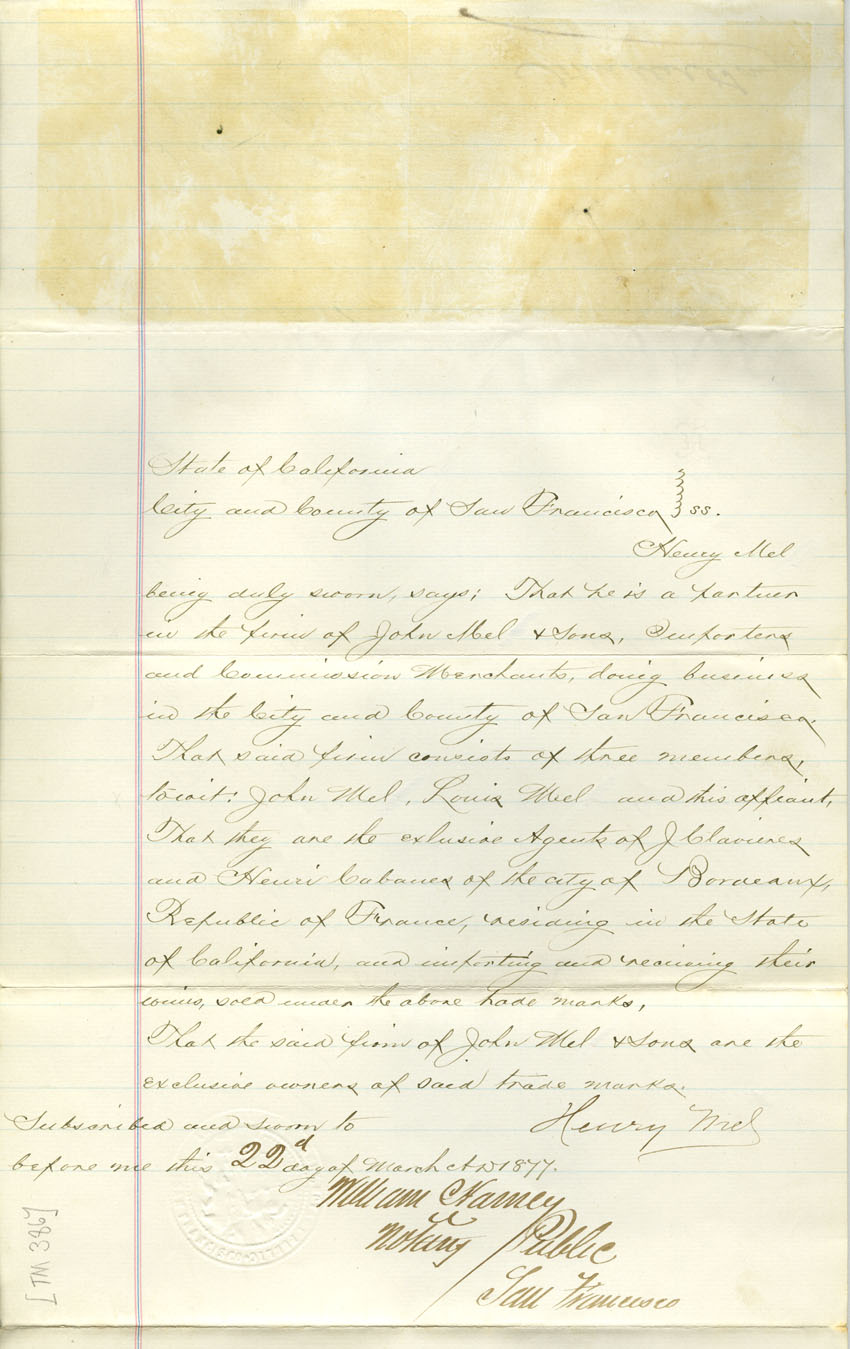 State of California
City and County of San Francisco } ss.
Henry Mel
being duly sworn, says; That he is a partner
in the firm of John Mel & Sons, Importers
and Commission Merchants, doing business
in the City and County of San Francisco.
That said firm consists of three members,
towit: John Mel, Louis Mel and this affiant,
That they are the exlusive Agents of J Clavieres
and Henri Cabanes of the city of Bordeaux,
Republic of France, residing in the State
of California, and importing and receiving their
wines, sold under the above trade marks,
That the said firm of John Mel & Sons are the
exclusive owners of said trade marks.
Henry Mel
Subscribed and sworn to
before me this 22d day of March A D 1877.
William Harney
Notary Public
San Francisco
[TM 386]